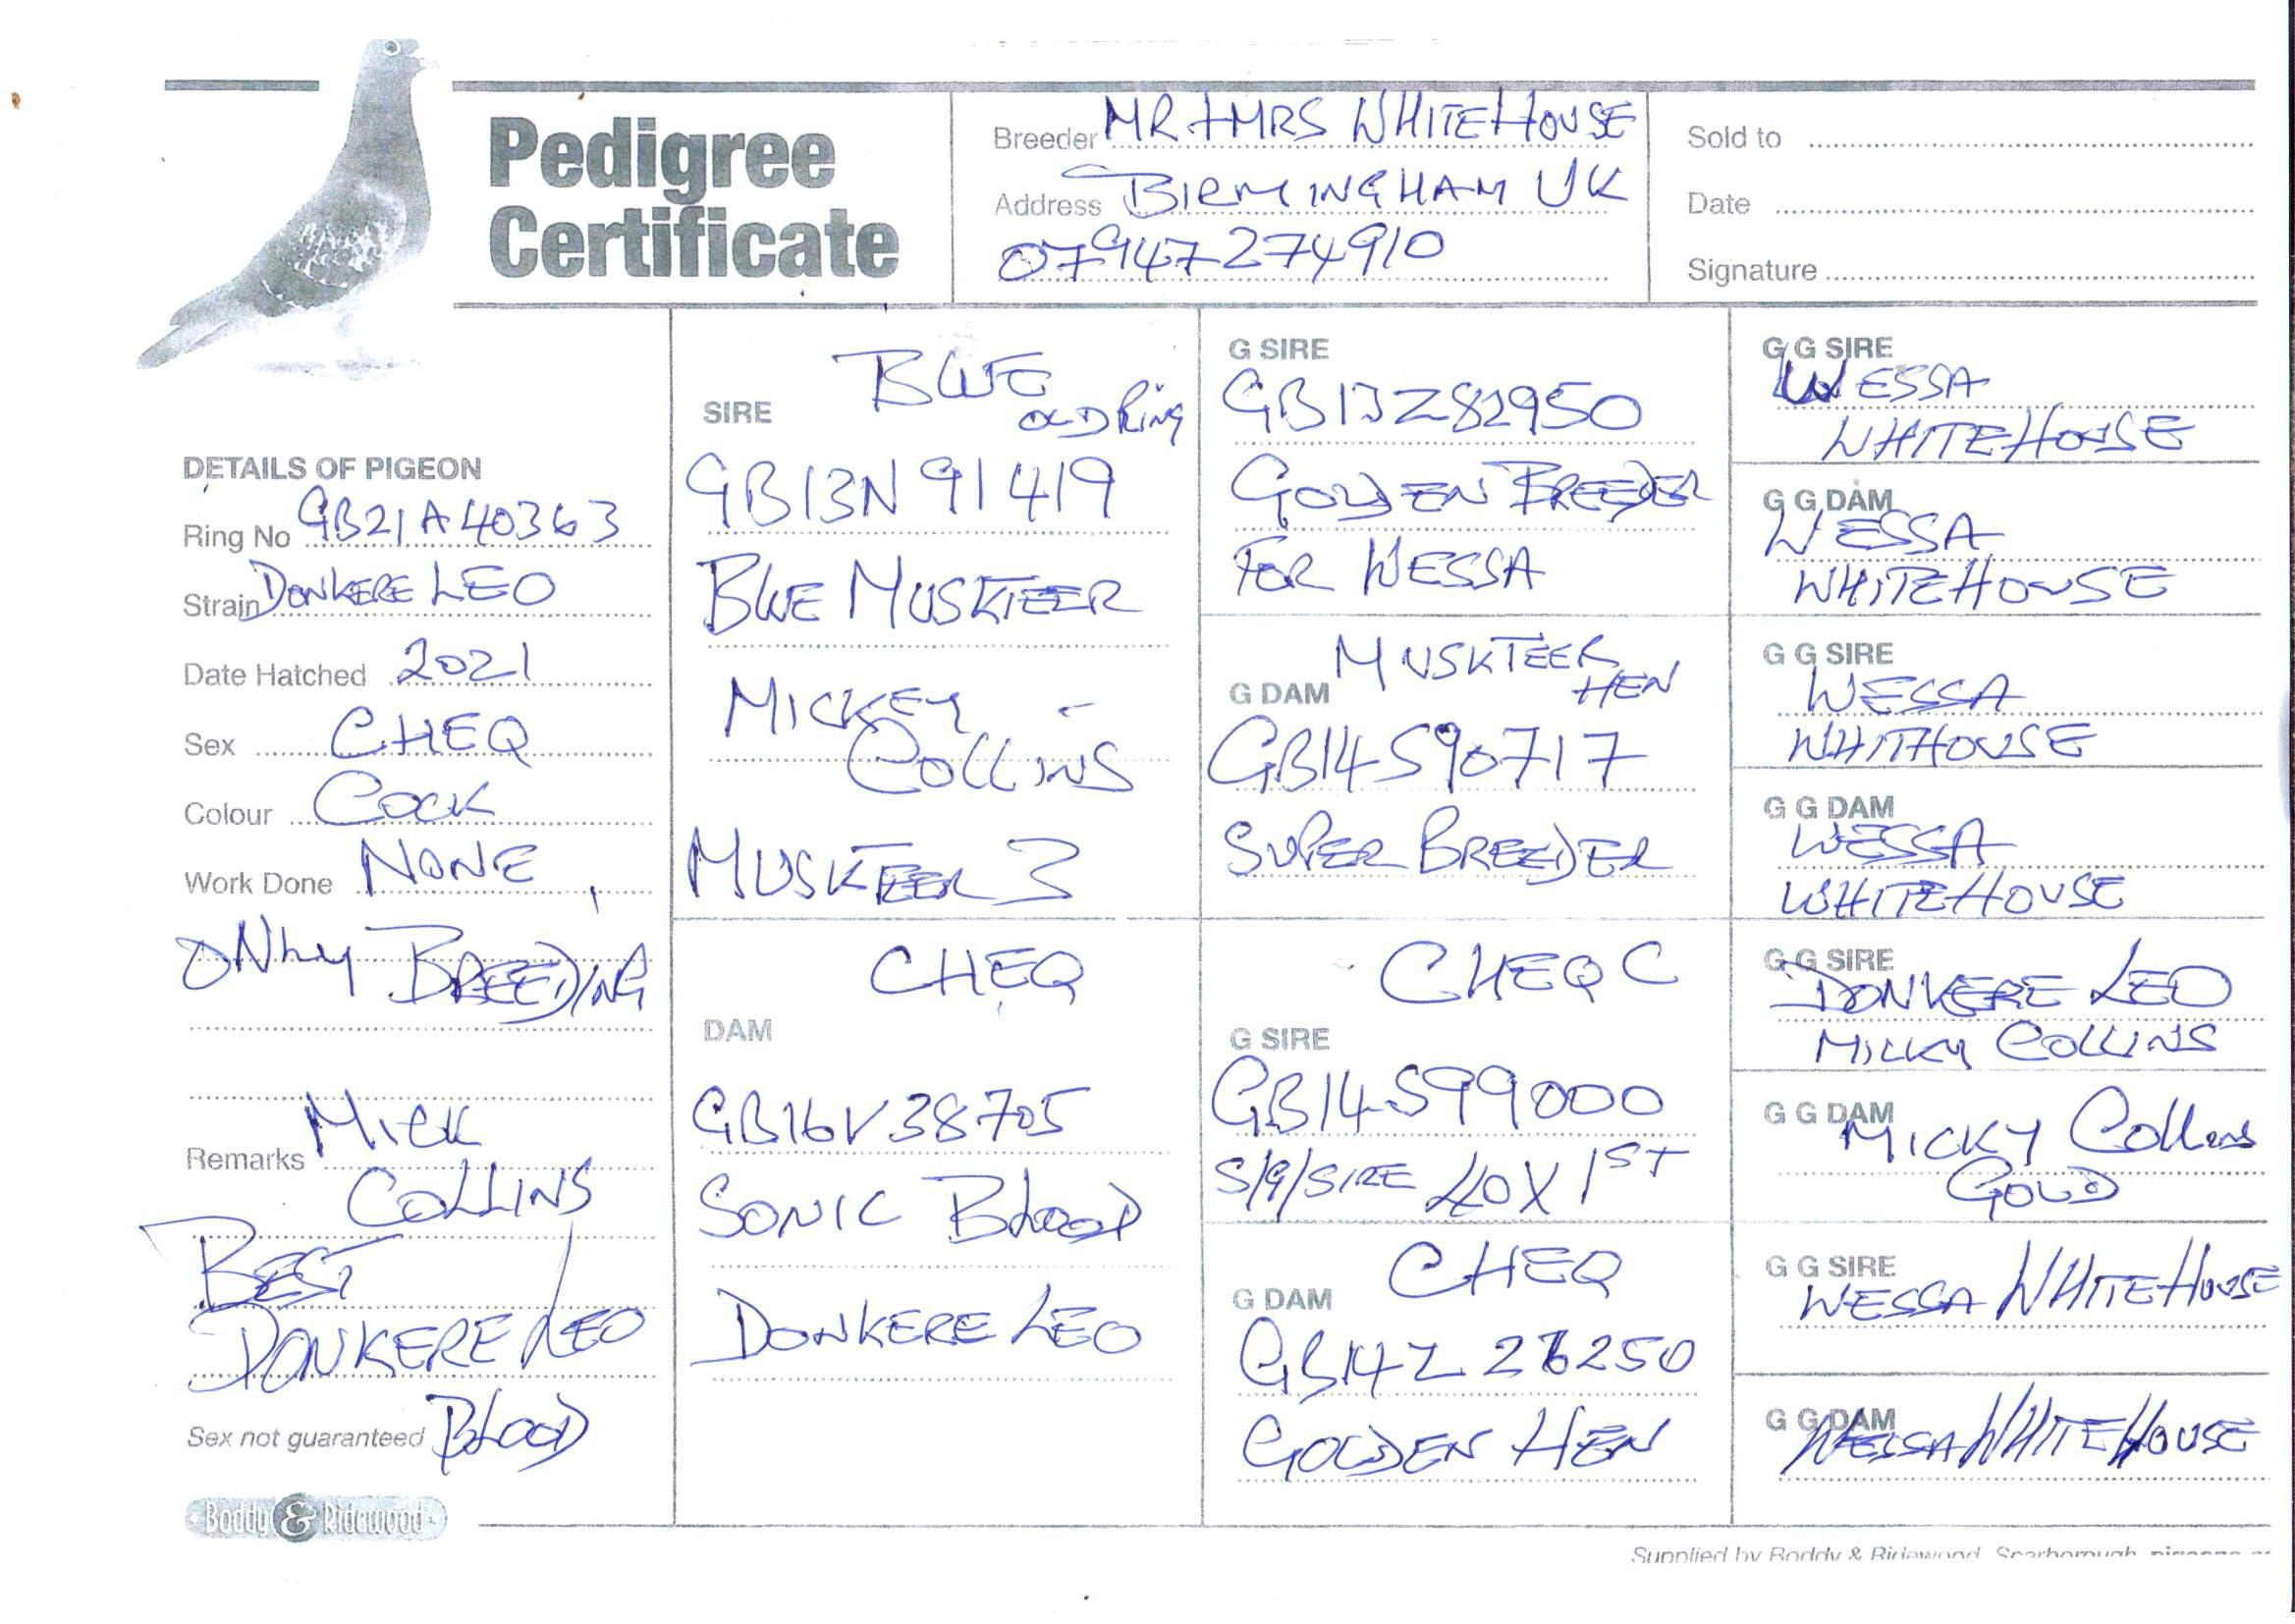 Pedigree
Certificate
Breeder MR + MRS WHITEHOUSE
Address BIRMINGHAM UK
07947274910
Sold to
Date
Signature
DETAILS OF PIGEON
Ring No GB21A40363
Strain DONKERE LEO
Date Hatched 2021
Sex CHEQ
Colour COCK
Work Done NONE,
ONLY BREEDING
Remarks MICK
COLLINS
BEST
DONKERE LEO
Sex not guaranteed BLOOD
Boddy & Ridewood
BLUE
SIRE OLD RING
GB13N91419
BLUE MUSKTEER
MICKEY
COLLINS
MUSKTEER 3
CHEQ
DAM
GB16V38705
SONIC BLOOD
DONKERE LEO
G SIRE
GB13Z82950
GOLDEN BREEDER
FOR WESSA
MUSKTEER
G DAM HEN
GB14S90717
SUPER BREEDER
CHEQ C
G SIRE
GB14S99000
S/G/SIRE 40X1ST
CHEQ
G DAM
GB14Z 26250
GOLDEN HEN
G G SIRE
WESSA
WHITEHOUSE
G G DAM
WESSA
WHITEHOUSE
G G SIRE
WESSA
WHITHOUSE
G G DAM
WESSA
WHITEHOUSE
G G SIRE
DONKERE LEO
MICKY COLLINS
G G DAM
MICKY COLLINS
GOLD
G G SIRE
WESSA WHITEHOUSE
G G DAM
WESSA WHITEHOUSE
Supplied by Boddy & Ridewood, Scarborough